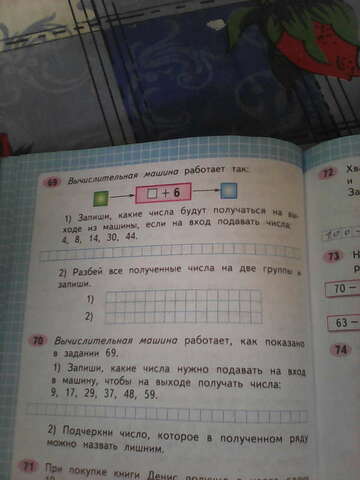 69 Вычислительная машина работает так:
□ + 6
1) Запиши, какие числа будут получаться на вы-
ходе из машины, если на вход подавать числа:
4, 8, 14, 30, 44.
2) Разбей все полученные числа на две группы и
запиши.
1)
2)
70 Вычислительная машина работает, как показано
в задании 69.
1) Запиши, какие числа нужно подавать на вход
в машину, чтобы на выходе получать числа:
9, 17, 29, 37, 48, 59.
2) Подчеркни число, которое в полученном ряду
можно назвать лишним.
71 При покупке книги Денис
72
и
За
100 -
73
70 –
63 –
74